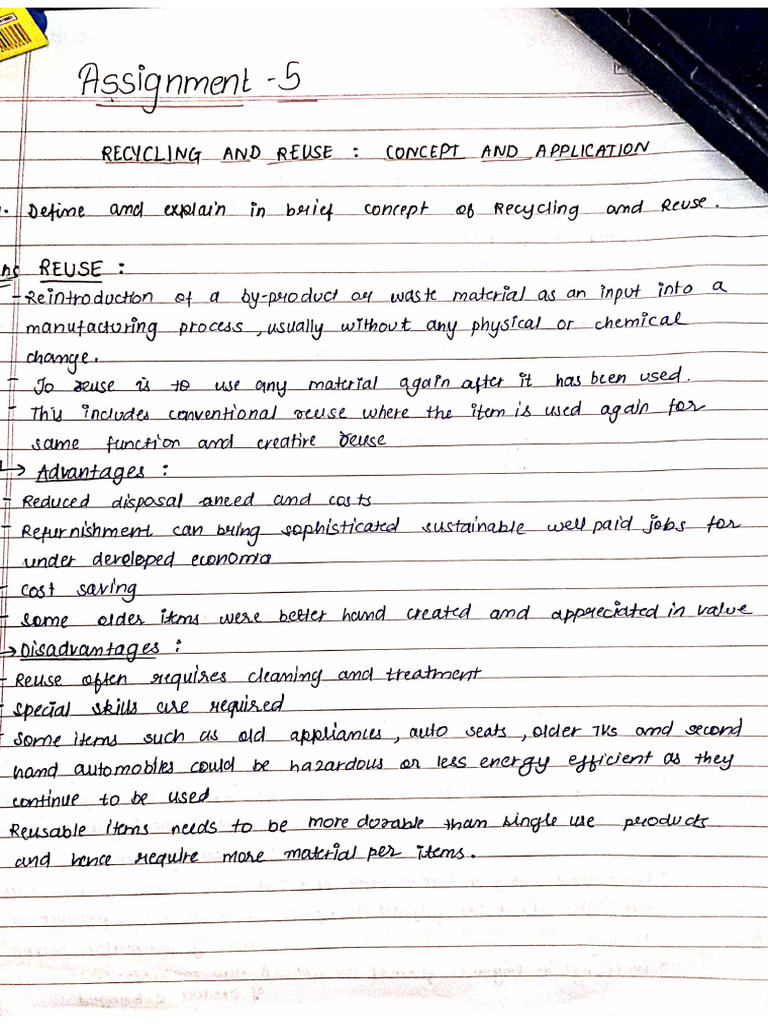 Assignment - 5
RECYCLING AND REUSE : CONCEPT AND APPLICATION
. Define and explain in brief concept of Recycling and Reuse.
ns REUSE :
- Reintroduction of a by-product or waste material as an input into a
manufacturing process , usually without any physical or chemical
change.
- To reuse is to use any material again after it has been used.
- This includes conventional reuse where the item is used again for
same function and creative reuse
→ Advantages :
- Reduced disposal aneed and costs
- Refurnishment can bring sophisticated sustainable well paid jobs for
under developed economia
- cost saving
- Some older items were better hand created and appreciated in value
→ Disadvantages :
- Reuse often requires cleaning and treatment
- special skills are required
- Some items such as old appliances , auto seats , older TVs and second
hand automobiles could be hazardous or less energy efficient as they
continue to be used
Reusable items needs to be more dorable than single use products
and hence require more material per items.